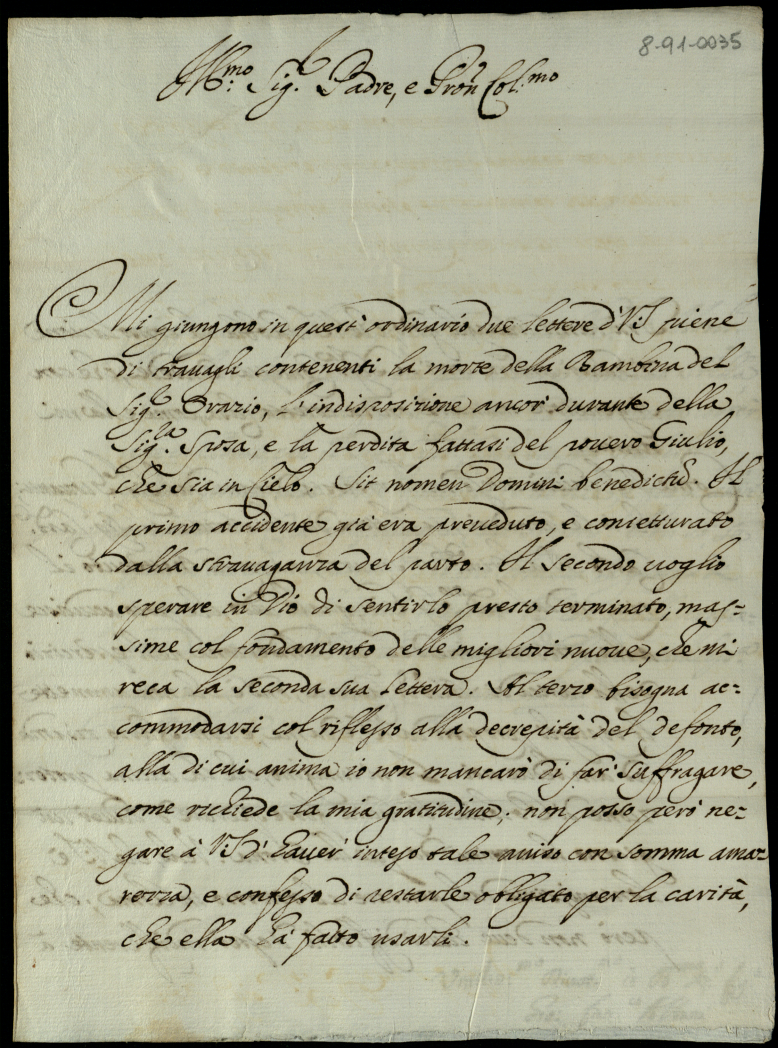 8-91-0035
Ill.mo Sig.r Padre, e Pron Col.mo
Mi giungono in quest'ordinario due lettere d'VS piene
di travagli contenenti la morte della Bambina del
Sig.r Orazio, l'indisposizione ancor durante della
Sig.ra Sposa, e la perdita fattasi del povero Giulio,
che sia in Cielo. Sit nomen Domini benedictũ. Il
primo accidente già era preveduto, e conietturato
dalla stravaganza del parto. Il secondo voglio
sperare in Dio di sentirlo presto terminato, mas-
sime col fondamento delle migliori nuove, che mi
reca la seconda sua lettera. Al terzo bisogna ac-
commodarsi col riflesso alla decrepità del defonto,
alla di cui anima io non mancarò di far suffragare,
come richiede la mia gratitudine; non posso però ne-
gare à VS d'haver inteso tale aviso con somma amar-
rezza, e confesso di restarle obligato per la carità,
che ella hà fatto usarli.